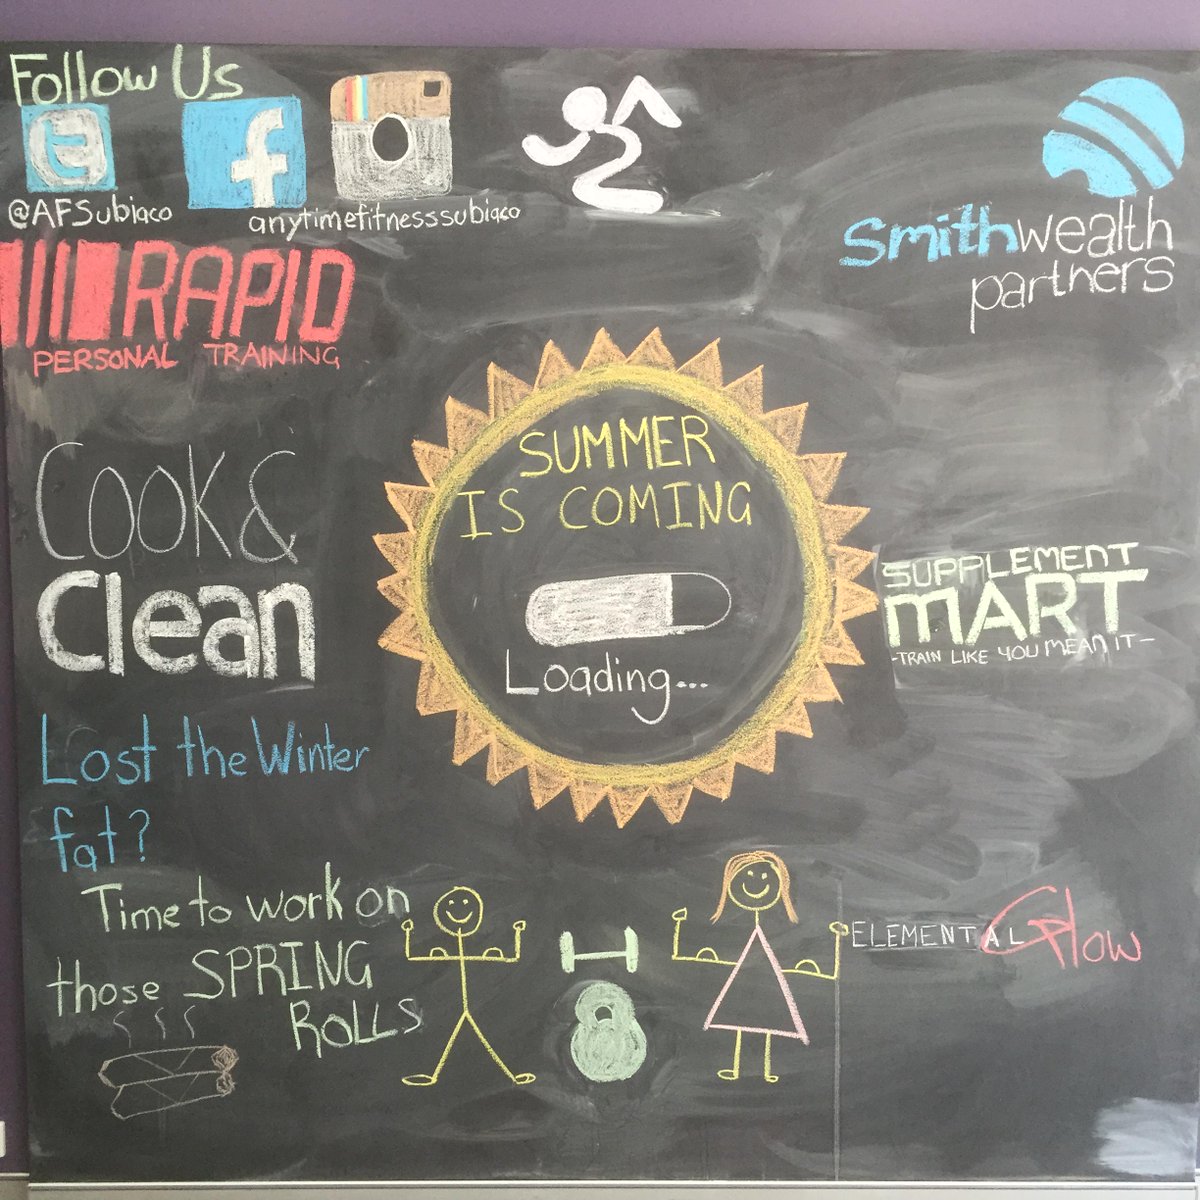 Follow Us
@AFSubiaco
anytimefitnesssubiaco
Smithwealth
partners
RAPID
PERSONAL TRAINING
SUMMER
IS COMING
Loading...
COOK &
Clean
SUPPLEMENT
MART
-TRAIN LIKE YOU MEAN IT-
Lost the Winter
fat?
Time to work on
those SPRING
ROLLS
ELEMENTAL Glow